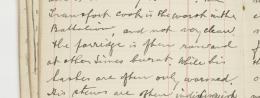 Transport cook is the worst in the
Battalion, and not very clean,
the porridge is often raw and
at other times burnt, while his
are often only warmed.
His stews are often